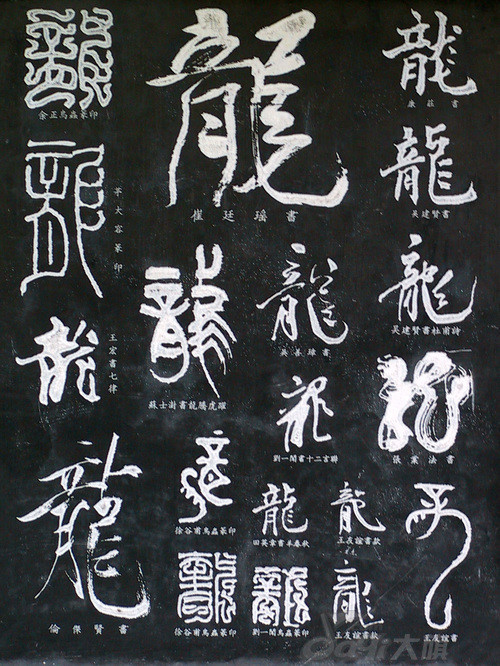 龍
余正鳥蟲篆印
龍
崔廷瑶書
龍
康莊書
龍
茅大容篆印
龍
吳建賢書
龍
王宏書七律
龍
蘇士澍書龍騰虎躍
龍
吳善璋書
龍
吳建賢書杜甫詩
龍
劉一聞書十二言聯
龍
張業法書
龍
倫傑賢書
龍
徐谷甫鳥蟲篆印
龍
田英章書羊春秋
龍
王友誼書款
龍
徐谷甫鳥蟲篆印
龍
劉一聞鳥蟲篆印
龍
王友誼書款
龍
王友誼書